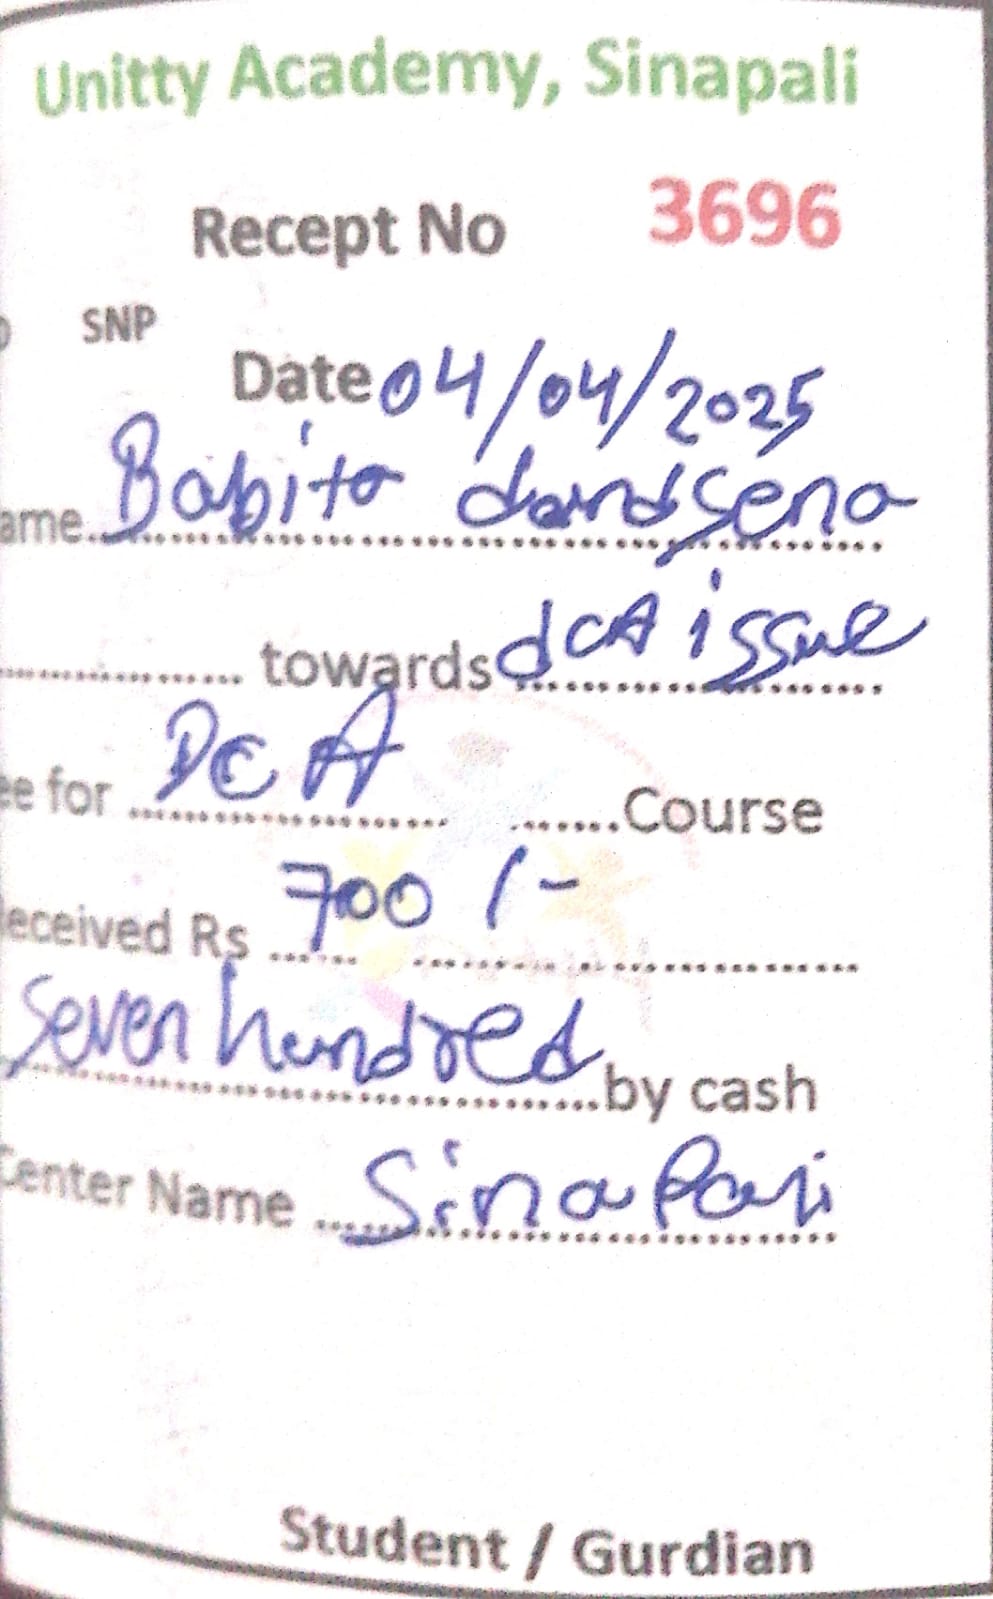 Unitty Academy, Sinapali
Recept No 3696
SNP
Date 04/04/2025
ame. Babita dandsena
towards dCA issue
ee for DCA Course
eceived Rs 700/-
Seven hundred by cash
Center Name Sinapali
Student / Gurdian